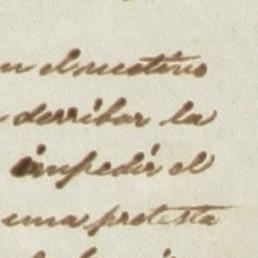 n el motivo
derribar la
impedir el
una protesta